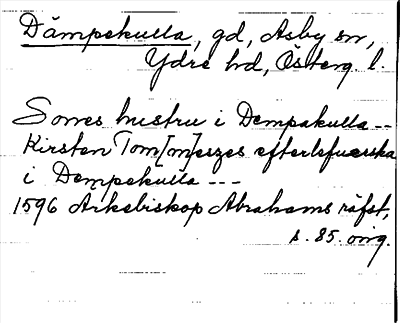 Dämpekulla, gd, Asby sn,
Ydre hd, Österg. l.
Sones hustru i Dempakulla --
Kirsten Tom[m]eszes efterlefuerska
i Dempekulla ---
1596 Ärkebiskop Abrahams räfst,
s. 85. orig.